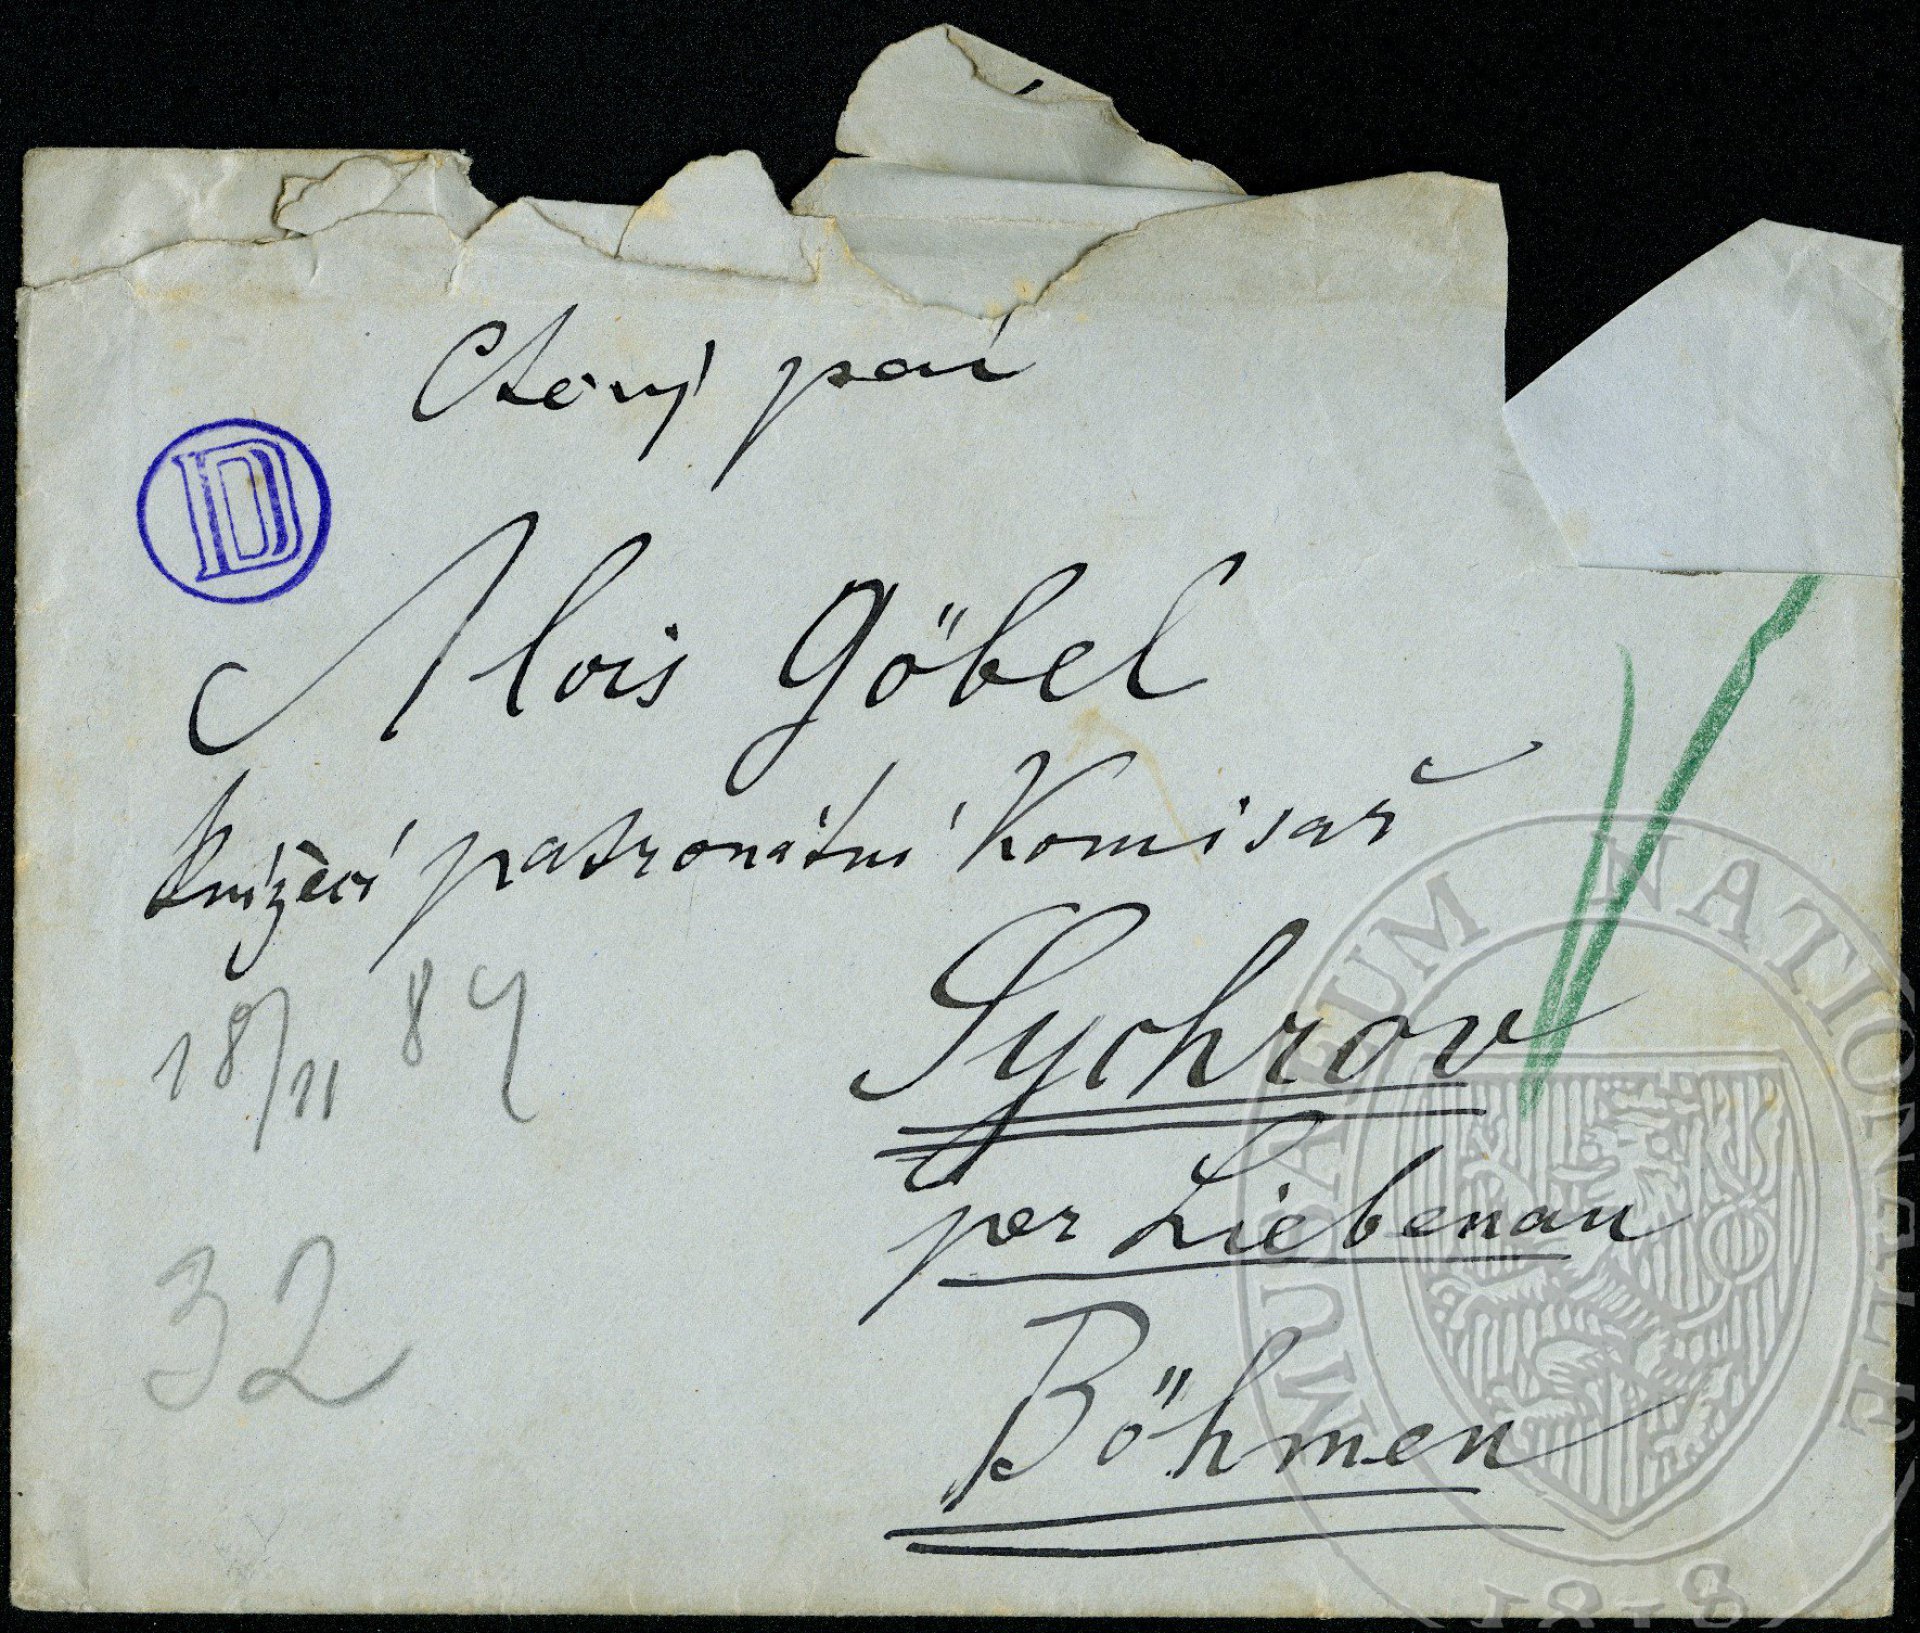 Ctěný pan
D
Alois Göbel
knížecí patronátní Komisař
Sychrov
18/11 84
per Liebenau
32
Böhmen
MUSAEUM NATIONALE
1818